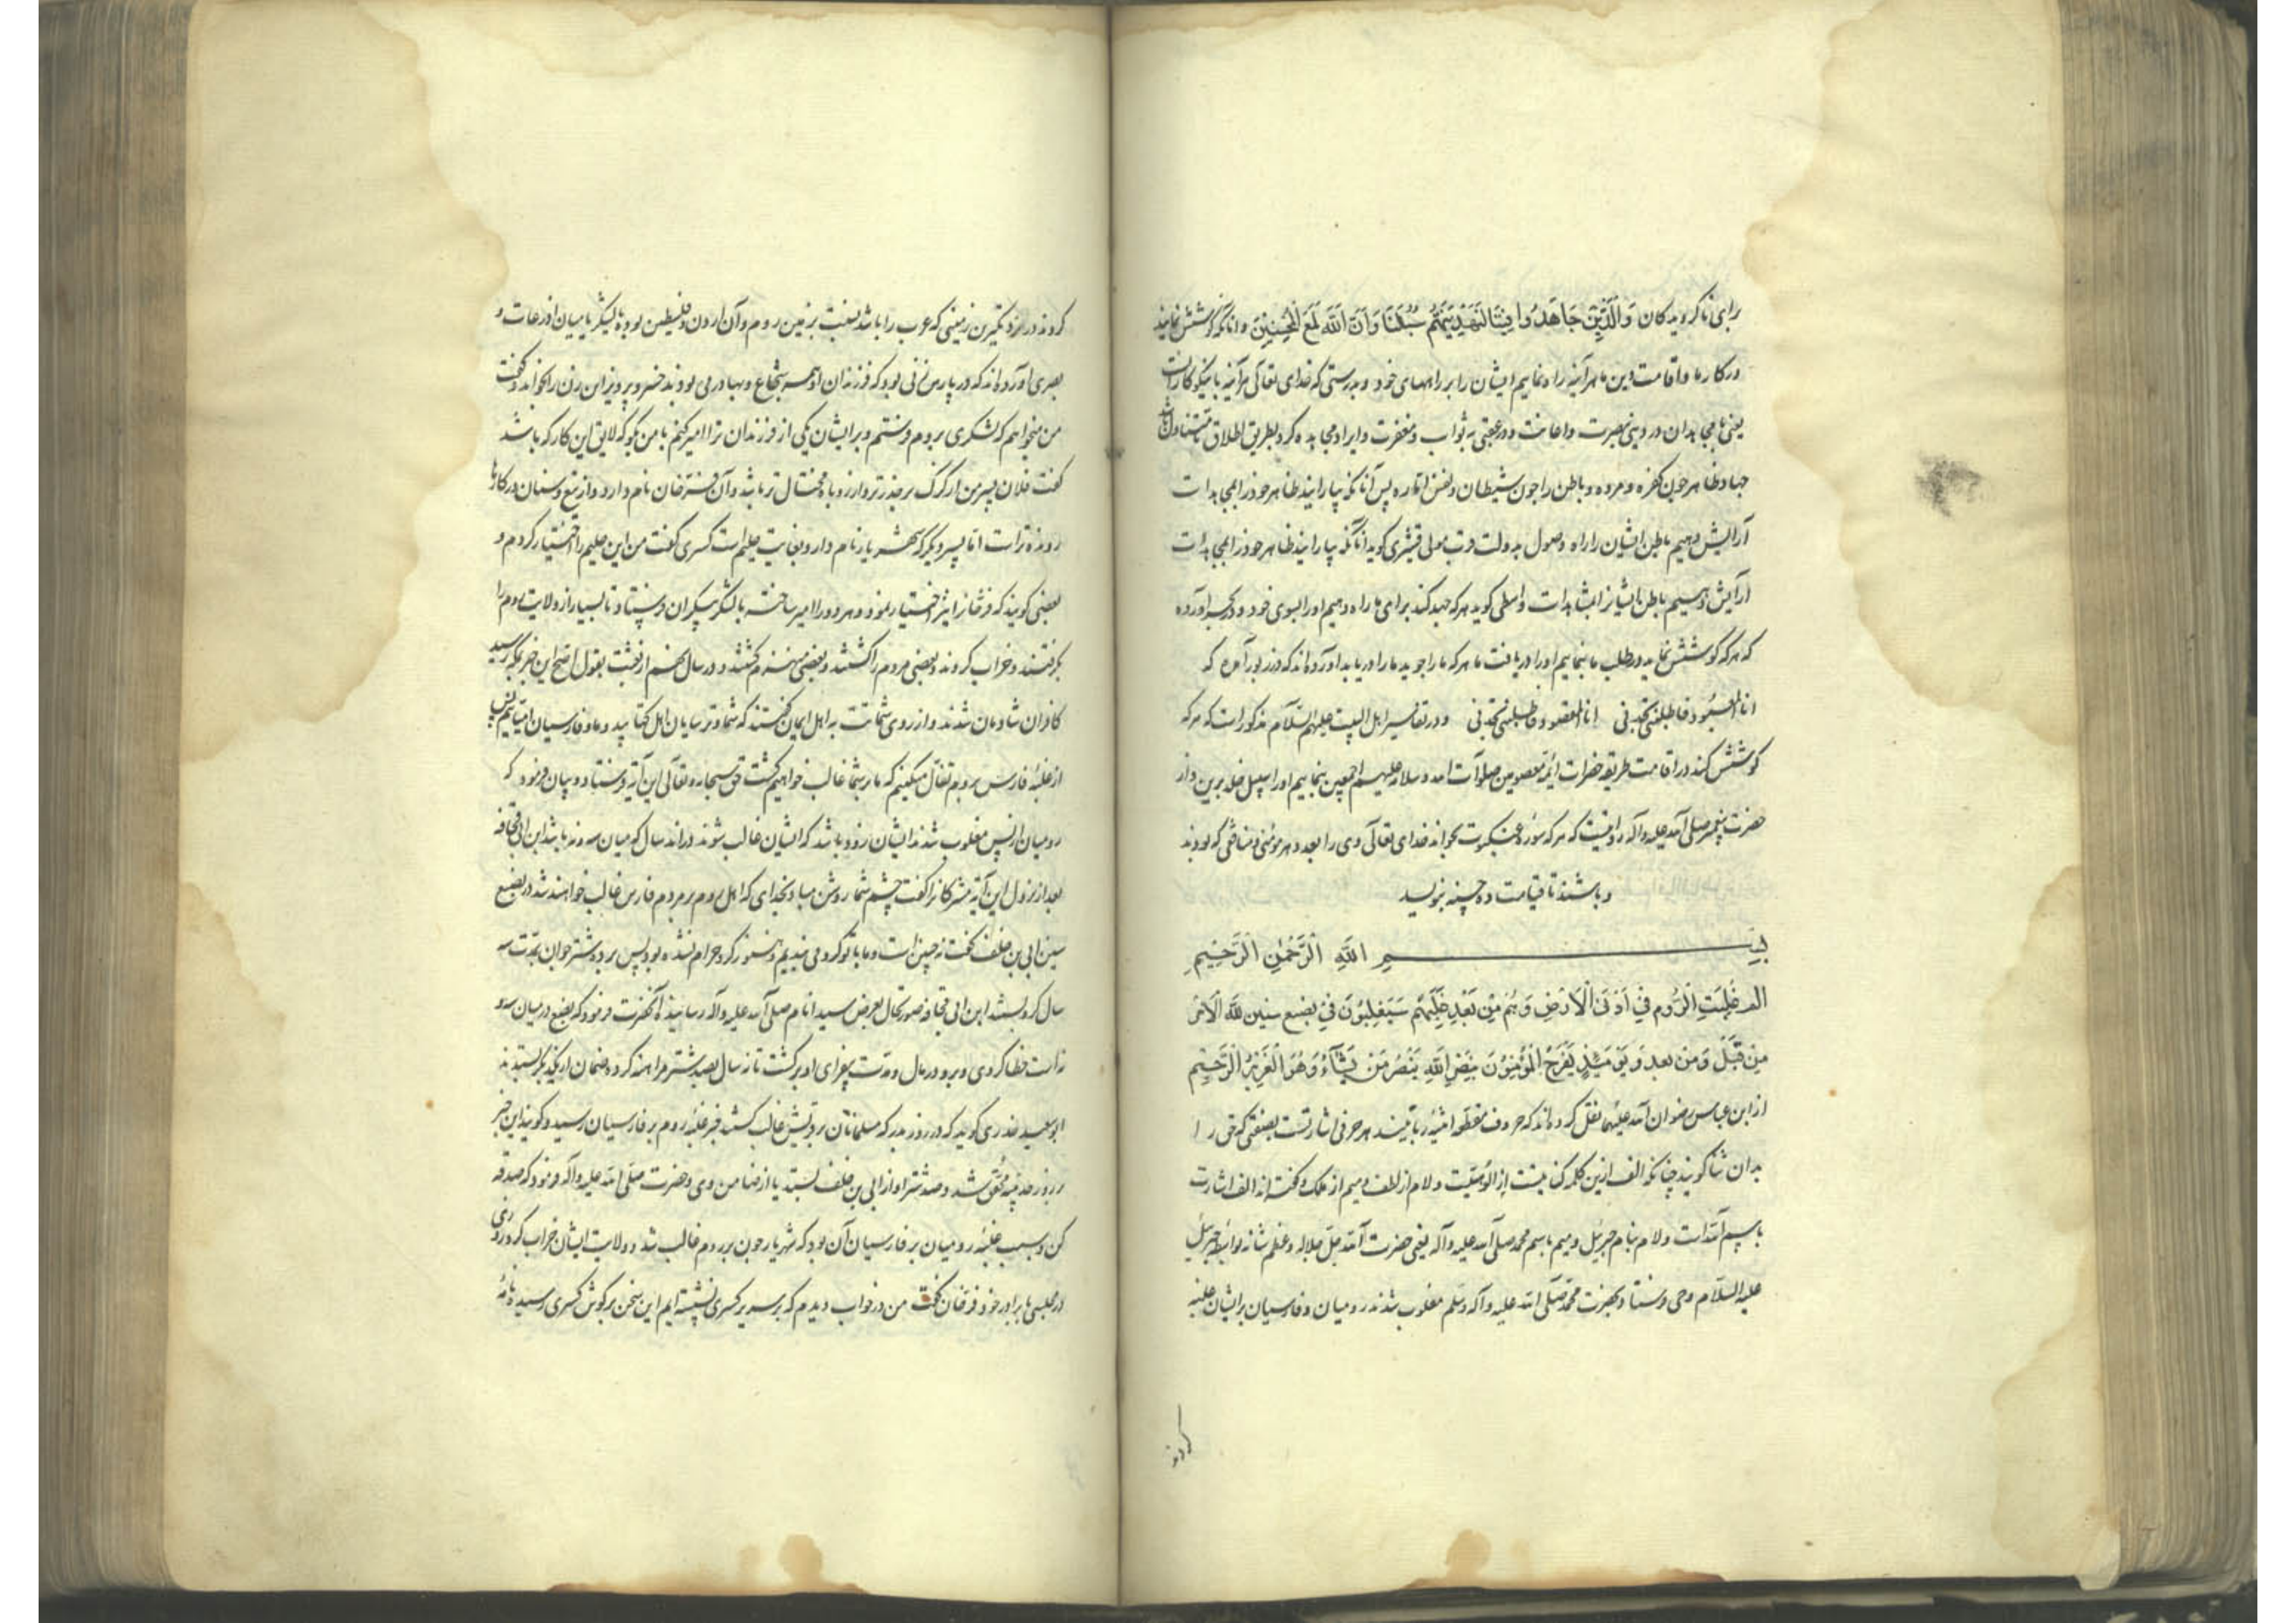 برای ناگرویدگان وَالَّذِينَ جَاهَدُوا فِينَا لَنَهْدِيَنَّهُمْ سُبُلَنَا وَاِنَّ اللَّهَ لَمَعَ الْمُحْسِنِينَ و آنانکه کوشش نمایند
در کار ما و اقامت دین ما هرآینه راه نماییم ایشان را بر راههای خود و بدرستی که خدای تعالی هرآینه با نیکوکارانست
یعنی با مجاهدان در دنیی بنصرت و اعانت و در عقبی به ثواب و مغفرت و ایراد مجاهده کرد بطریق اطلاق تا متناول باشد
جهاد ظاهر چون کفره و مرده و باطن را چون شیطان و نفس اماره پس آنانکه بیارایند ظاهر خود را بمجاهدات
آرایش دهیم باطن ایشان را راه وصول بدولت قرب مولی قشیری گوید آنانکه بیارایند ظاهر خود را بمجاهدات
آرایش دهیم باطن ایشانرا بمشاهدات واسطی گوید هرکه جهد کند برای ما راه دهیم او را بسوی خود و دیگر آورده
که هرکه کوشش نماید در طلب ما بنماییم او را دریافت ما هرکه ما را جوید ما را دریابد آورده‌اند که در زبور آمده که
انا المعبود فاطلبنی تجدنی انا المقصود فاطلبنی تجدنی و در تفاسیر اهل البیت علیهم السلام مذکور است که هرکه
کوشش کند در اقامت طریقه حضرات ائمه معصومین صلوات الله و سلامه علیهم اجمعین بنماییم او را سبیل خلد برین و از
حضرت پیغمبر صلی الله علیه وآله روایتست که هرکه سوره عنکبوت بخواند خدای تعالی وی را بعدد هر مومنی و منافقی که بودند
و باشند تا قیامت ده حسنه بنویسد
بسم الله الرَّحْمٰنِ الرَّحِيمِ
الم غُلِبَتِ الرُّومُ فِي اَدْنَى الْاَرْضِ وَهُمْ مِنْ بَعْدِ غَلَبِهِمْ سَيَغْلِبُونَ فِي بِضْعِ سِنِينَ لِلَّهِ الْاَمْرُ
مِنْ قَبْلُ وَمِنْ بَعْدُ وَيَوْمَئِذٍ يَفْرَحُ الْمُؤْمِنُونَ بِنَصْرِ اللَّهِ يَنْصُرُ مَنْ يَشَاءُ وَهُوَ الْعَزِيزُ الرَّحِيمُ
از ابن عباس رضوان الله علیهما نقل کرده‌اند که حروف مقطعه اثنیه ربانیند هر حرفی اشارتست بصفتی که حق را
بدان ثنا گویند چنانکه الف ازین کلمه کنایتست از الوهیت و لام از لطف و میم از ملک و گفته‌اند الف اشارت
باسم الله است و لام بنام جبرئیل و میم باسم محمد صلی الله علیه وآله یعنی حضرت الله جل جلاله و عظم شانه بواسطه جبرئیل
علیه السلام وحی فرستاد بحضرت محمد صلی الله علیه وآله وسلم مغلوب شدند رومیان و فارسیان بر ایشان غلبه
کردند
کردند در نزدیکترین زمینی که عرب را باشد نسبت بزمین روم و آن اردن و فلسطین بوده یا لشکر یا میان اذرعات و
بصری آورده‌اند که در پارس زنی بود که فرزندان او همه شجاع و بهادر می بودند خسرو پرویز این زن را بخواند و گفت
من میخواهم که لشکری بروم فرستم و بر ایشان یکی از فرزندان ترا امیر کنم با من بگو که لایق این کار که باشد
گفت فلان پسر من از گرگ برحذرتر و از روباه محتال تر باشد و آن فرخان نام دارد و از تیغ و سنان در کارها
رونده تر است اما پسر دیگر که شهریار نام دارد بغایت حلیم است کسری گفت من این حلیم را اختیار کردم و
بعضی گویند که فرخانرا نیز اختیار نمود و هر دو را امیر ساخته با لشکر بیکران فرستاد تا بسیار از ولایت روم را
بگرفتند و خراب کردند و بعضی مردم را کشتند و بعضی منهزم گشتند و در سال پنجم از بعثت بقول اصح این خبر بمکه رسید
کافران شادمان شدند و از روی شماتت به اهل ایمان گفتند که شما و ترسایان اهل کتابید و ما و فارسیان امیانیم پس
از غلبه فارس بر روم تفال میکنیم که ما بر شما غالب خواهیم گشت حق سبحانه و تعالی این آیه فرستاد و بیان فرمود که
رومیان از پس مغلوب شدن ایشان زود باشد که ایشان غالب شوند در اند سال که میان سه و نه باشد ابن ابی قحافه
بعد از نزول این آیه مشرکانرا گفت چشم شما روشن مباد بخدای که اهل روم بر مردم فارس غالب خواهند شد در بضع
سنین ابی بن خلف گفت نه چنین است و ما با تو گرو می بندیم و هنوز گرو حرام نشده بود پس بر ده شتر جوان بمدت سه
سال گرو بستند ابن ابی قحافه صورتحال بعرض سید انام صلی الله علیه وآله رسانید آنحضرت فرمود که بضع درمیان سه و
نه است خطا کردی و برو در مال و مدت بیفزای او برگشت تا نه سال بصد شتر مراهنه کرد و ضمان از یکدیگر بستدند
ابوسعید خدری گوید که در روز بدر که مسلمانان بر قریش غالب گشتند خبر غلبه روم بر فارسیان رسید و گویند این خبر
در روز حدیبیه محقق شد و صد شتر او از ابی بن خلف بستد یا از ضامن وی و حضرت صلی الله علیه وآله فرمود که صدقه
کن و سبب غلبه رومیان بر فارسیان آن بود که شهریار چون بر روم غالب شد و ولایت ایشان خراب کرد روزی
در مجلسی با برادر خود فرخان گفت من در خواب دیدم که بر سریر کسری نشسته ایم این سخن بگوش کسری رسید نامه